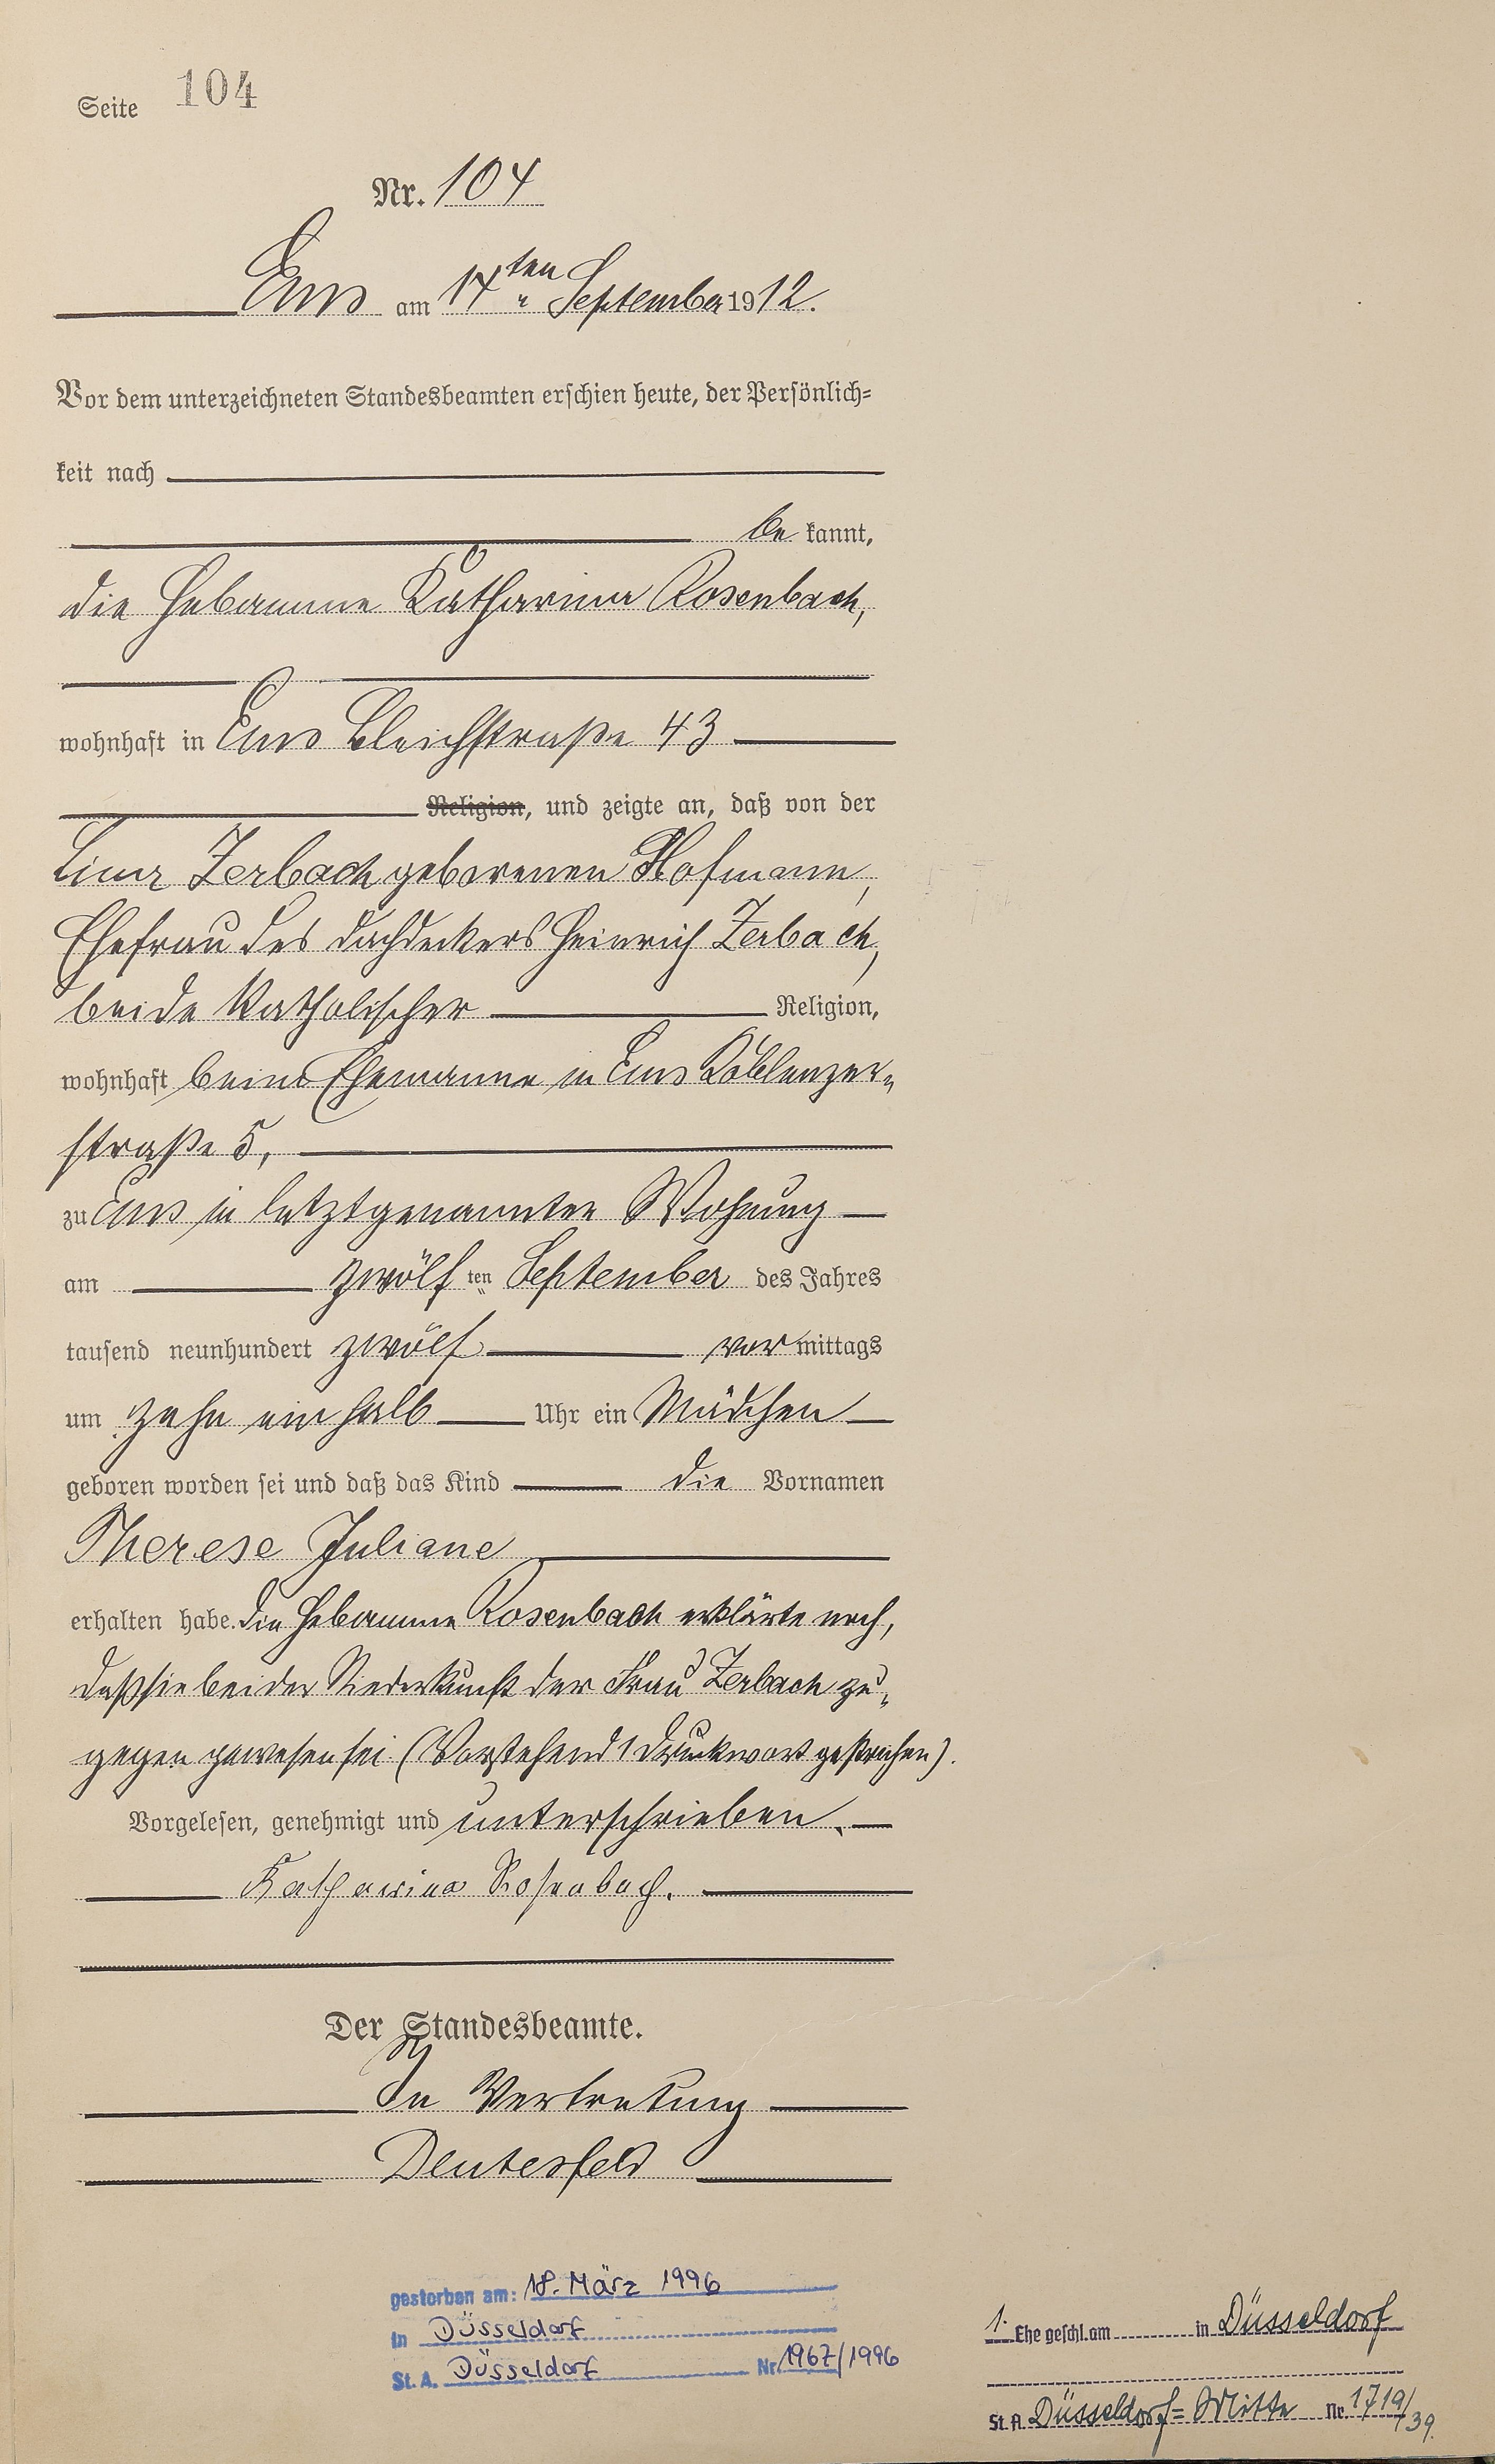 Seite 104
Nr. 104
Ems am 14ten September 1912.
Vor dem unterzeichneten Standesbeamten erschien heute, der Persönlich=
keit nach
be kannt,
die Hebamme Katharina Rosenbach,
wohnhaft in Ems Bleichstraße 43
Religion, und zeigte an, daß von der
Lina Zerbach geborenen Hofmann,
Ehefrau des Dachdeckers Heinrich Zerbach,
beide katholischer Religion,
wohnhaft beim Ehemanne in Ems Koblenzer„
straße 5,
zu Ems in letztgenannter Wohnung
am zwölf ten September des Jahres
tausend neunhundert zwölf vor mittags
um zehn ein halb Uhr ein Mädchen
geboren worden sei und daß das Kind die Vornamen
Therese Juliane
erhalten habe. Die Hebamme Rosenbach erklärte noch,
daß sie bei der Niederkunft der Frau Zerbach zu„
gegen gewesen sei (Vorstehend 1 Druckwort gestrichen).
Vorgelesen, genehmigt und unterschrieben.
Katharina Rosenbach.
Der Standesbeamte.
In Vertretung
Deutesfeld
gestorben am: 18. März 1996
in Düsseldorf
St. A. Düsseldorf Nr. 1967/1996
1. Ehe geschl. am in Düsseldorf
St. A. Düsseldorf=Mitte Nr. 1719/39.